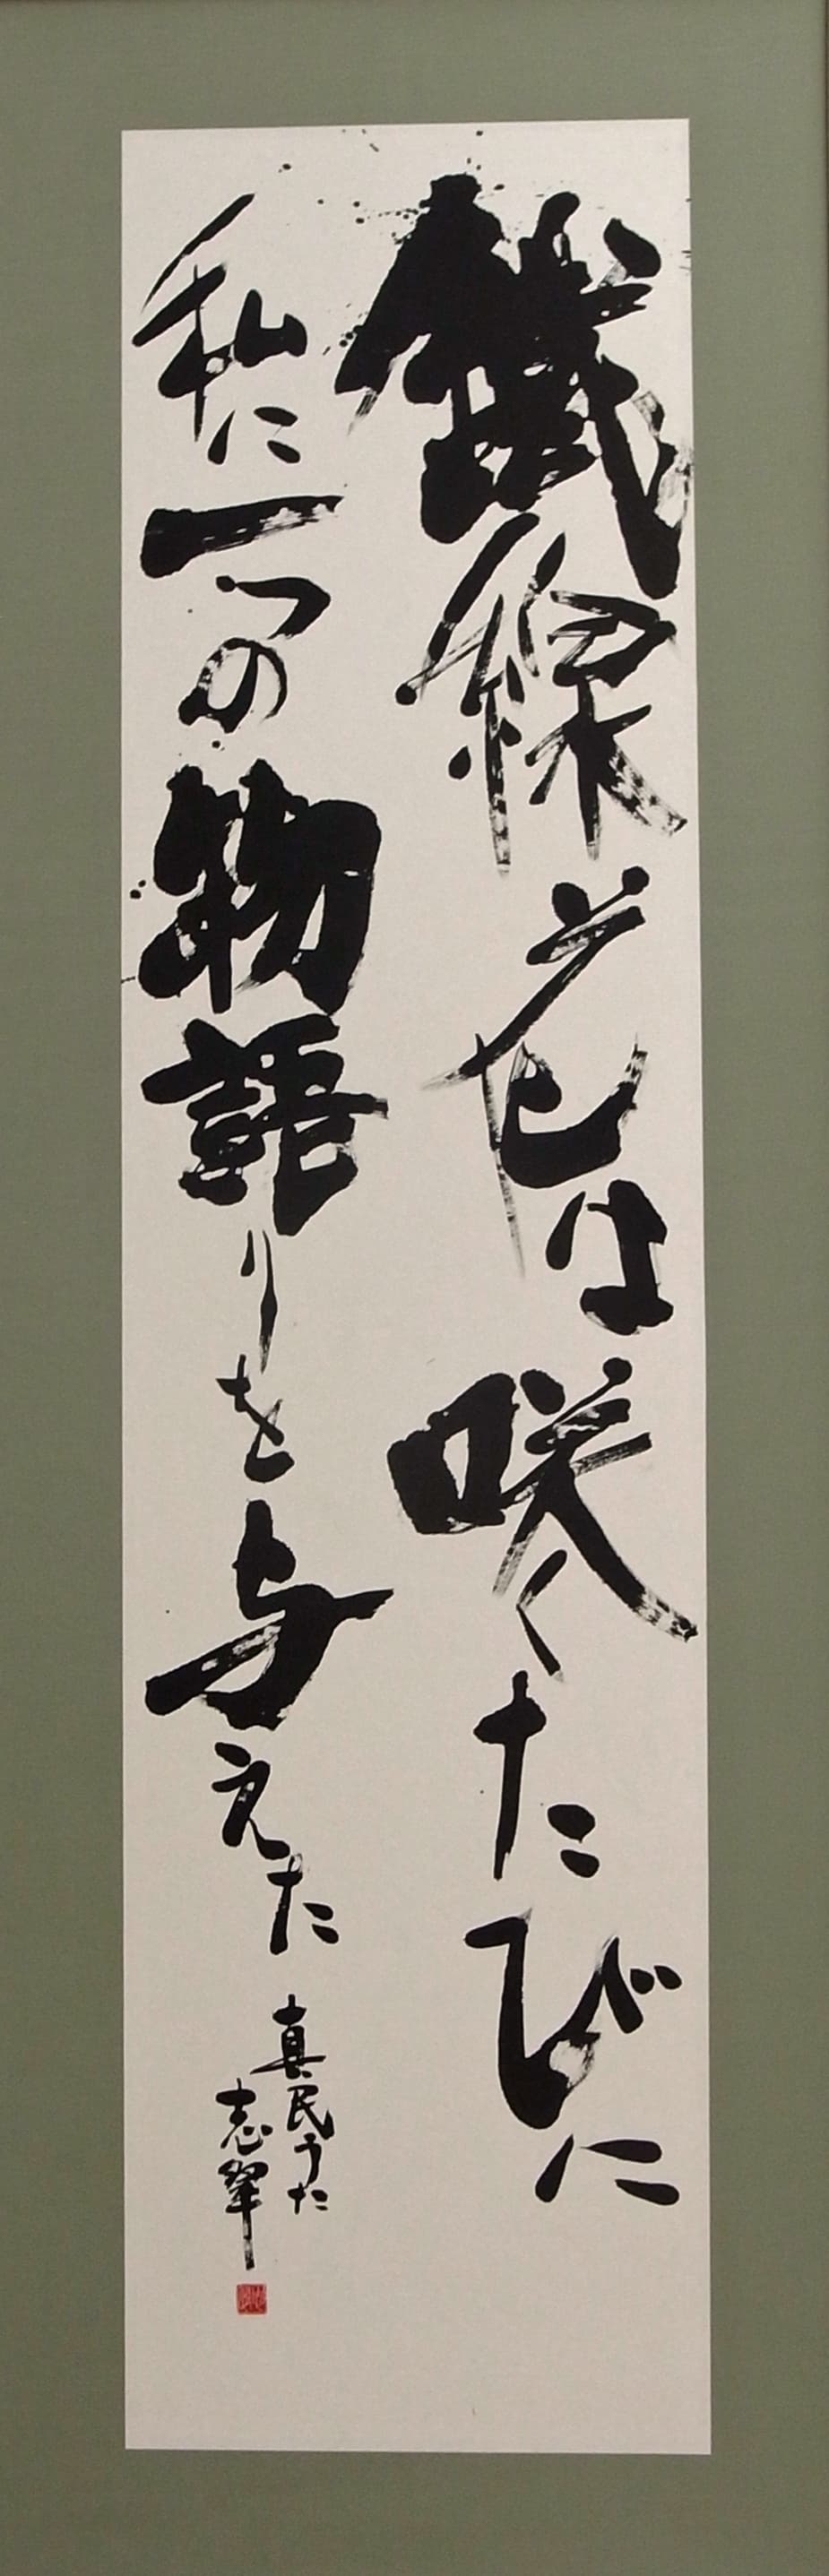 鐵線花は咲くたびに
私に一つの物語りを与えた
真民うた
志翠